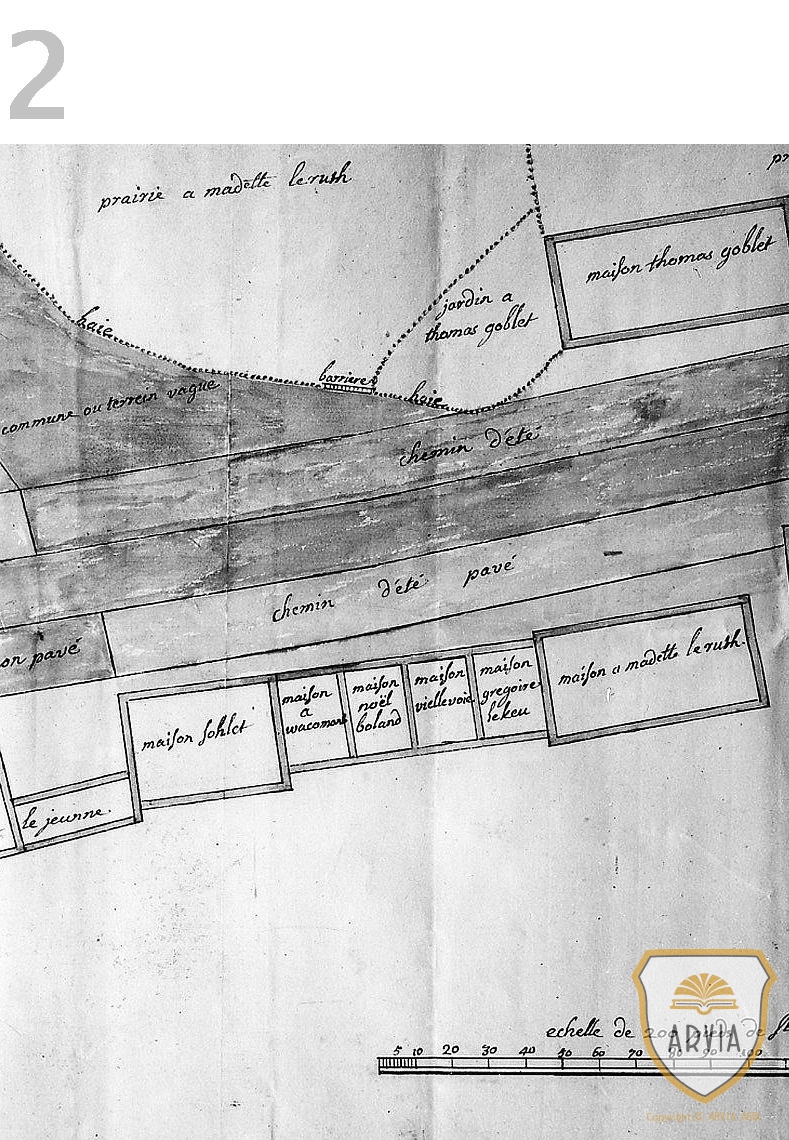 2
prairie a madelle lerush
pr
maison thomas goblet
haie
jardin a
thomas goblet
barriere
haie
commune ou terrein vague
chemin d'été
chemin d'été pavé
on pavé
maison a madelle lerush.
maison sohlet
maison
a
wacomont
maison
noël
boland
maison
viellevoie
maison
gregoire
lekeu
le jeunne.
echelle de 200 pieds de St
5 10 20 30 40 50 60 70 80 90 100
ARVIA